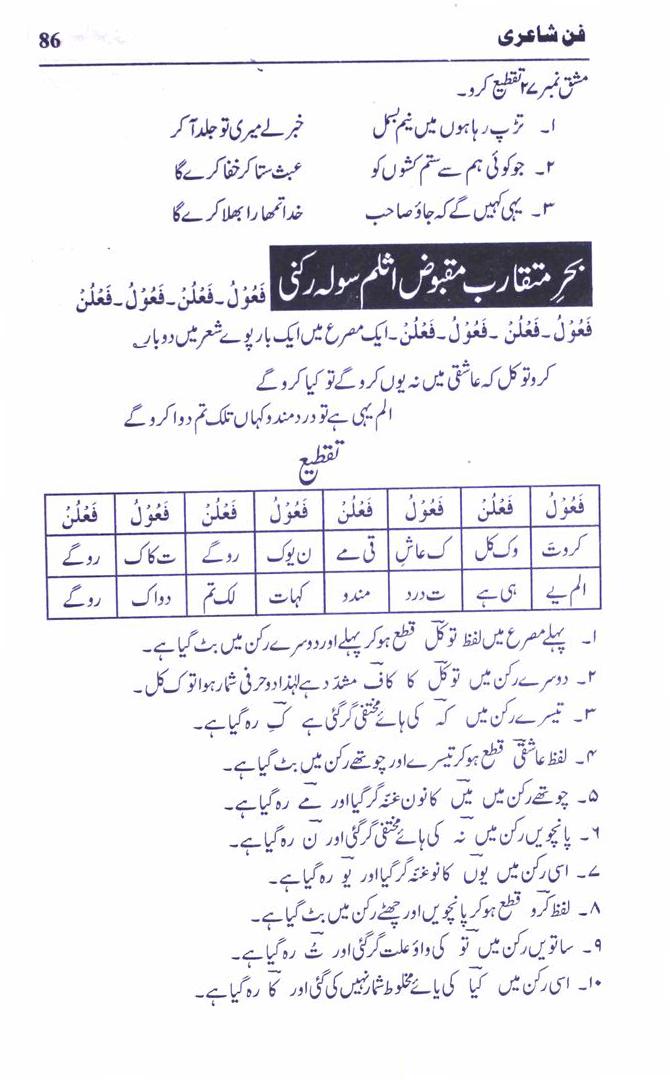 فن شاعری 86
مشق نمبر ۲۷ تقطیع کرو۔
۱۔ تڑپ رہا ہوں میں نیم بسمل خبر لے میری تو جلد آ کر
۲۔ جو کوئی ہم سے ستم کشوں کو عبث ستا کر خفا کرے گا
۳۔ یہی کہیں گے کہ جاؤ صاحب خدا تمھارا بھلا کرے گا
بحرِ متقارب مقبوض اثلم سولہ رکنی فَعُوْلُ۔فَعْلُنْ۔فَعُوْلُ۔فَعْلُنْ
فَعُوْلُ۔فَعْلُنْ۔فَعُوْلُ۔فَعْلُنْ۔ایک مصرع میں ایک بار پوے شعر میں دوبار۔
کرو توکل کہ عاشقی میں نہ یوں کرو گے تو کیا کرو گے
الم یہی ہے تو درد مندو کہاں تلک تم دوا کرو گے
تقطیع
فَعُوْلُ فَعْلُنْ فَعُوْلُ فَعْلُنْ فَعُوْلُ فَعْلُنْ فَعُوْلُ فَعْلُنْ
کروتَ وک کل ک عاشِ قی مے ن یوک روگے ت کاک روگے
الم یے ہی ہے ت درد مندو کہات لک تم دواک روگے
۱۔ پہلے مصرع میں لفظ توکّل قطع ہو کر پہلے اور دوسرے رکن میں بٹ گیا ہے۔
۲۔ دوسرے رکن میں توکّل کا کاف مشدّد ہے لہٰذا دو حرفی شمار ہوا توک کل۔
۳۔ تیسرے رکن میں کہ کی ہائے مختفی گر گئی ہے کِ رہ گیا ہے۔
۴۔ لفظ عاشقی قطع ہو کر تیسرے اور چوتھے رکن میں بٹ گیا ہے۔
۵۔ چوتھے رکن میں میں کا نون غنّہ گر گیا اور مے رہ گیا ہے۔
۶۔ پانچویں رکن میں نہ کی ہائے مختفی گر گئی اور ن رہ گیا ہے۔
۷۔ اسی رکن میں یوں کا نو غنّہ گر گیا اور یو رہ گیا ہے۔
۸۔ لفظ کرو قطع ہو کر پانچویں اور چھٹے رکن میں بٹ گیا ہے۔
۹۔ ساتویں رکن میں تو کی واؤ علت گر گئی اور تُ رہ گیا ہے۔
۱۰۔ اسی رکن میں کیا کی یائے مخلوط شمار نہیں کی گئی اور کا رہ گیا ہے۔